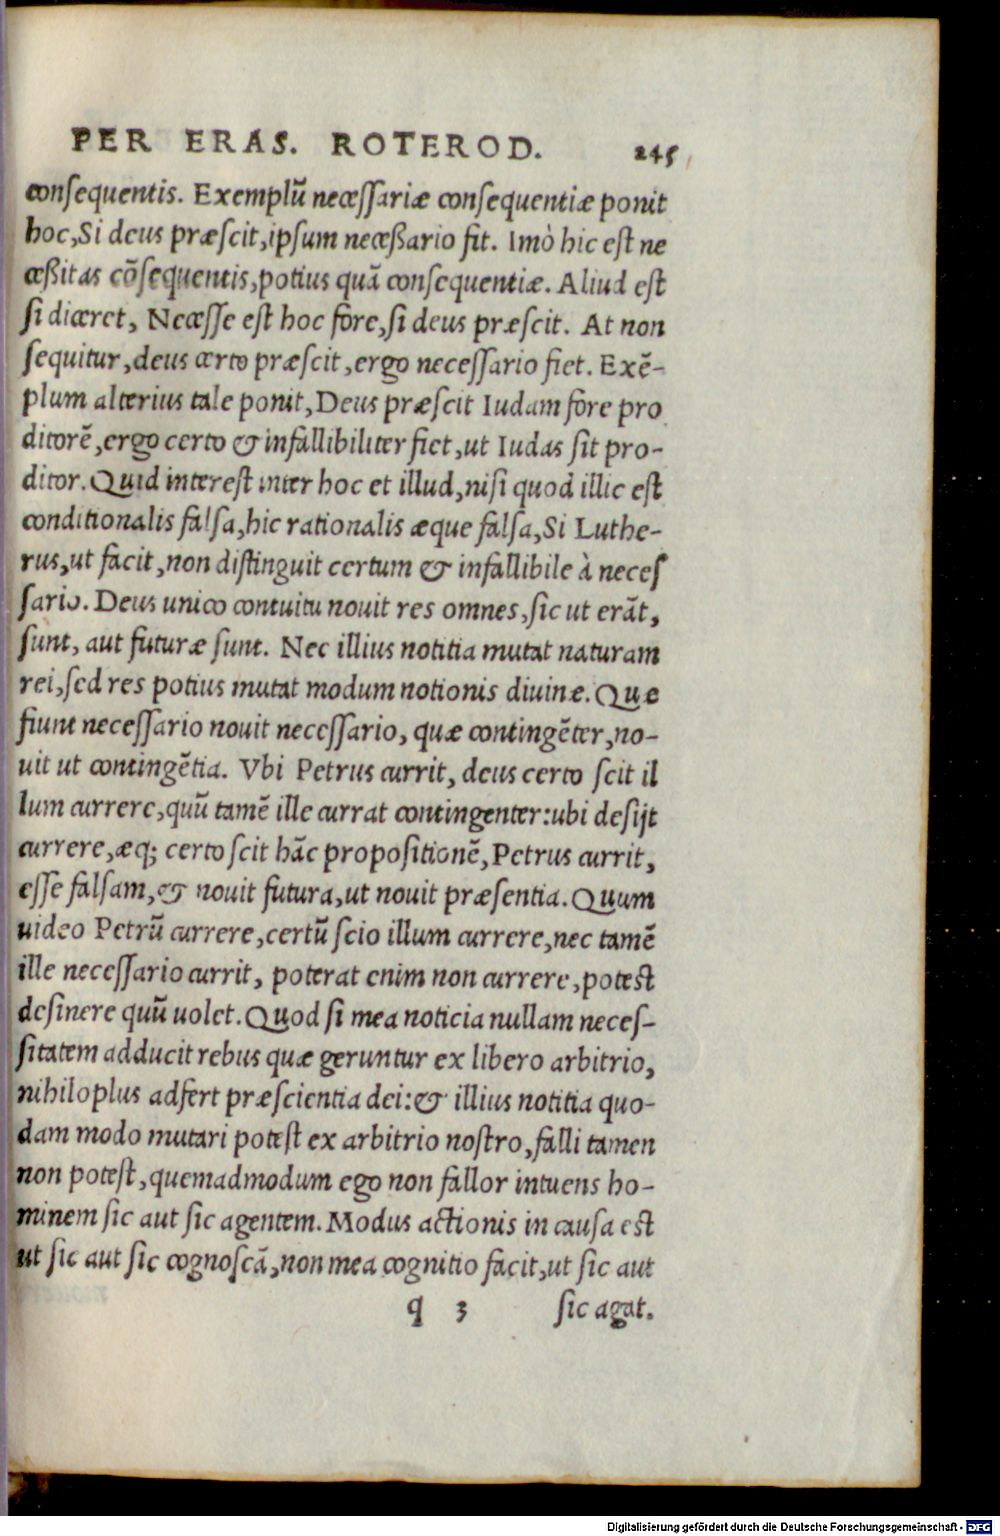 PER ERAS. ROTEROD. 245
consequentis. Exemplũ necessariæ consequentiæ ponit
hoc, Si deus præscit, ipsum necessario fit. Imò hic est ne
cessitas cõsequentis, potius quã consequentiæ. Aliud est
si diceret, Necesse est hoc fore, si deus præscit. At non
sequitur, deus certo præscit, ergo necessario fiet. Exẽ-
plum alterius tale ponit, Deus præscit Iudam fore pro
ditorẽ, ergo certo & infallibiliter fiet, ut Iudas sit pro-
ditor. Quid interest inter hoc et illud, nisi quòd illic est
conditionalis falsa, hic rationalis æque falsa, Si Luthe-
rus, ut facit, non distinguit certum & infallibile à neces
sario. Deus unico contuitu nouit res omnes, sic ut erãt,
sunt, aut futuræ sunt. Nec illius notitia mutat naturam
rei, sed res potius mutat modum notionis diuinæ. Quæ
fiunt necessario nouit necessario, quæ contingẽter, no-
uit ut contingẽtia. Vbi Petrus currit, deus certo scit il
lum currere, quũ tamẽ ille currat contingenter: ubi desijt
currere, æq; certo scit hãc propositionẽ, Petrus currit,
esse falsam, & nouit futura, ut nouit præsentia. Quum
uideo Petrũ currere, certũ scio illum currere, nec tamẽ
ille necessario currit, poterat enim non currere, potest
desinere quũ uolet. Quod si mea noticia nullam neces-
sitatem adducit rebus quæ geruntur ex libero arbitrio,
nihiloplus adfert præscientia dei: & illius notitia quo-
dam modo mutari potest ex arbitrio nostro, falli tamen
non potest, quemadmodum ego non fallor intuens ho-
minem sic aut sic agentem. Modus actionis in causa est
ut sic aut sic cognoscã, non mea cognitio facit, ut sic aut
q 3 sic agat.
Digitalisierung gefördert durch die Deutsche Forschungsgemeinschaft - DFG